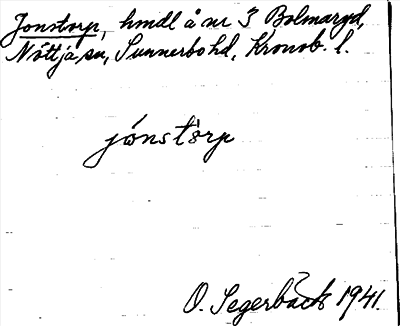 Jonstorp, hmdl å nr 3 Bolmaryd,
Nöttja, sn, Sunnerbo hd, Kronob. l.
jónstòrp
O. Segerbäck 1941.